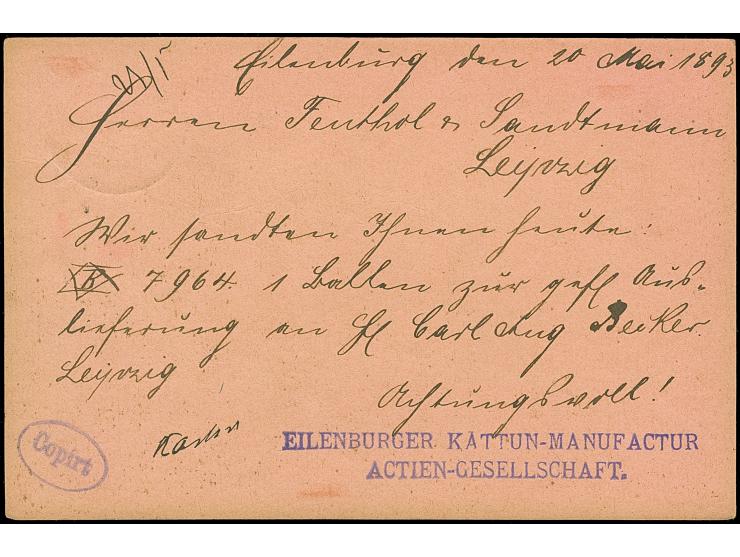 21/5
Eilenburg den 20 Mai 1893
Herren Fenthol & Sandtmann
Leipzig
Wir sandten Ihnen heute:
B 7964 1 Ballen zur gefl Aus-
lieferung an H Carl Aug Becker.
Leipzig
Achtungsvoll!
Copirt
EILENBURGER KATTUN-MANUFACTUR
ACTIEN-GESELLSCHAFT.